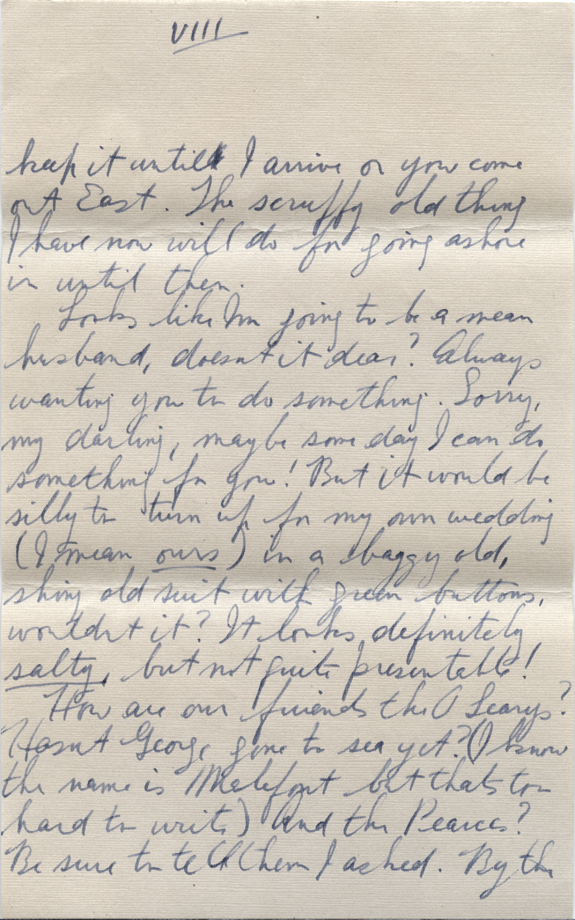 VIII
keep it until I arrive or you come
out East. The scruffy old thing
I have now will do for going ashore
in until then.
Looks like I'm going to be a mean
husband, doesn't it dear? Always
wanting you to do something. Sorry,
my darling, maybe some day I can do
something for you! But it would be
silly to turn up for my own wedding
(I mean ours) in a baggy old,
shiny old suit with green buttons,
wouldn't it? It looks definitely
salty, but not quite presentable!
How are our friends the O'Learys?
Hasn't George gone to sea yet? (I know
the name is but thats too
hard to write) And the Pearces?
Be sure to tell them I asked. By the